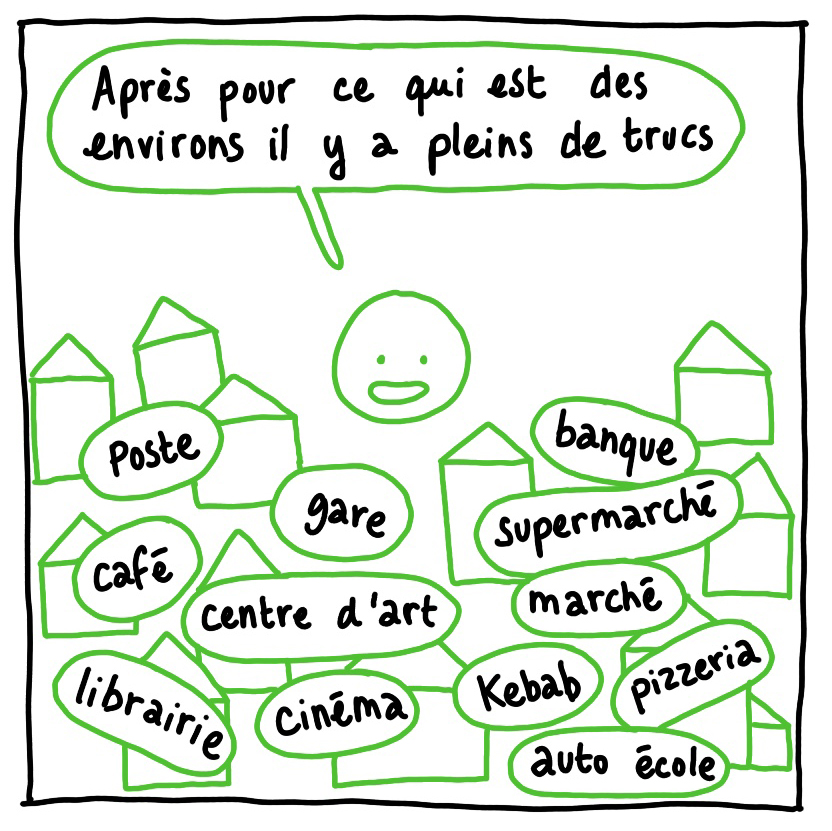 Après pour ce qui est des
environs il y a pleins de trucs
poste
banque
gare
supermarché
café
centre d'art
marché
librairie
cinéma
Kebab
pizzeria
auto école